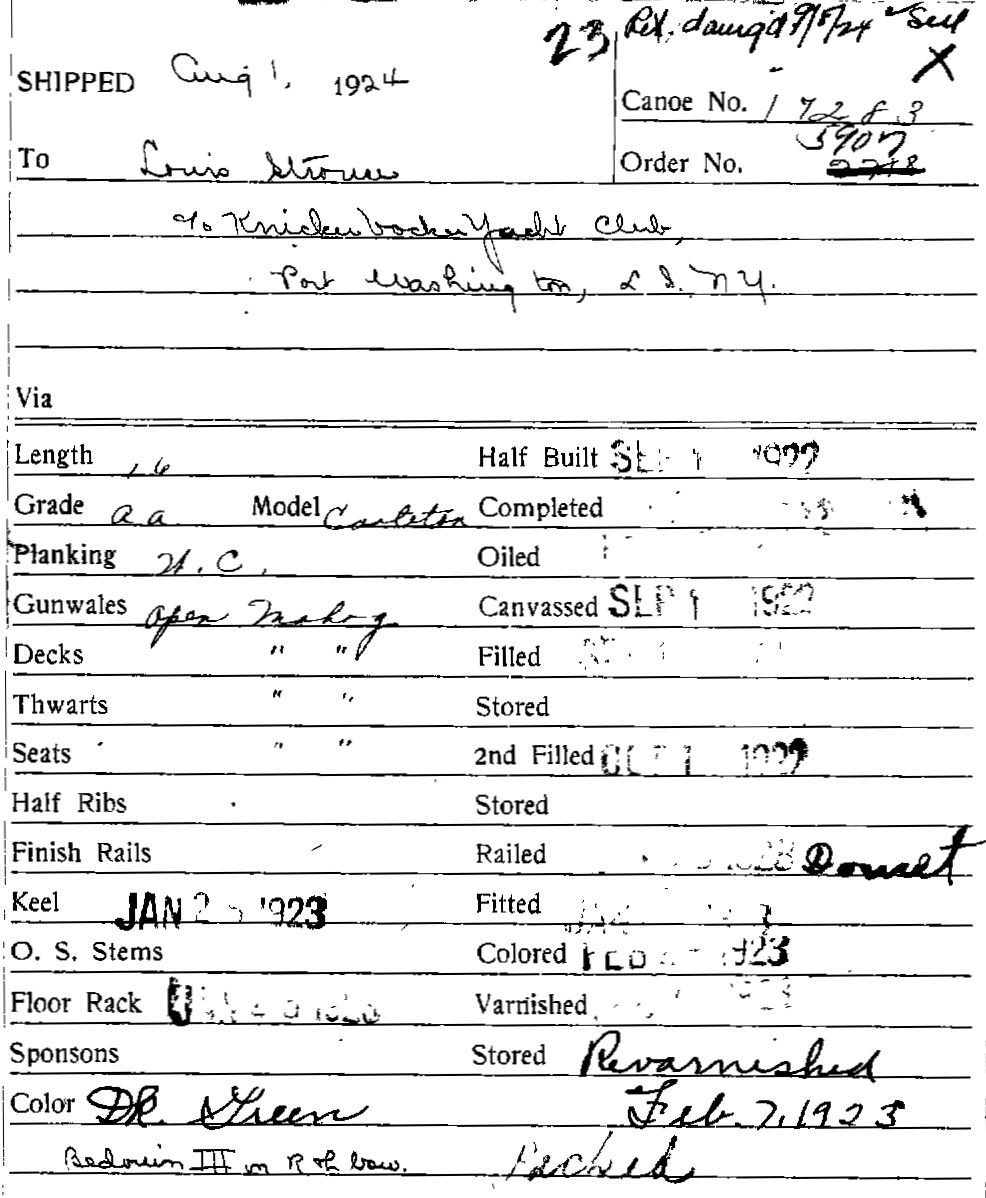 23 Ret. damg'd 9/5/24
X
SHIPPED Aug 1, 1924
Canoe No. 17283
5907
To Louis
Order No. 2718
c/o Knickerbocker Yacht Club,
Port Washington, L I. N Y.
Via
Length 16 Half Built SEP 1 1922
Grade a a Model Carleton Completed
Planking W. C. Oiled
Gunwales open Mahog Canvassed SEP 1 1922
Decks " " Filled
Thwarts " " Stored
Seats " " 2nd Filled OCT 1 1922
Half Ribs Stored
Finish Rails Railed
Keel JAN 2 1923 Fitted
O. S. Stems Colored FEB 1923
Floor Rack Varnished
Sponsons Stored Revarnished
Color DK. Green Feb. 7, 1923
Bedouin III on R of bow. Packed